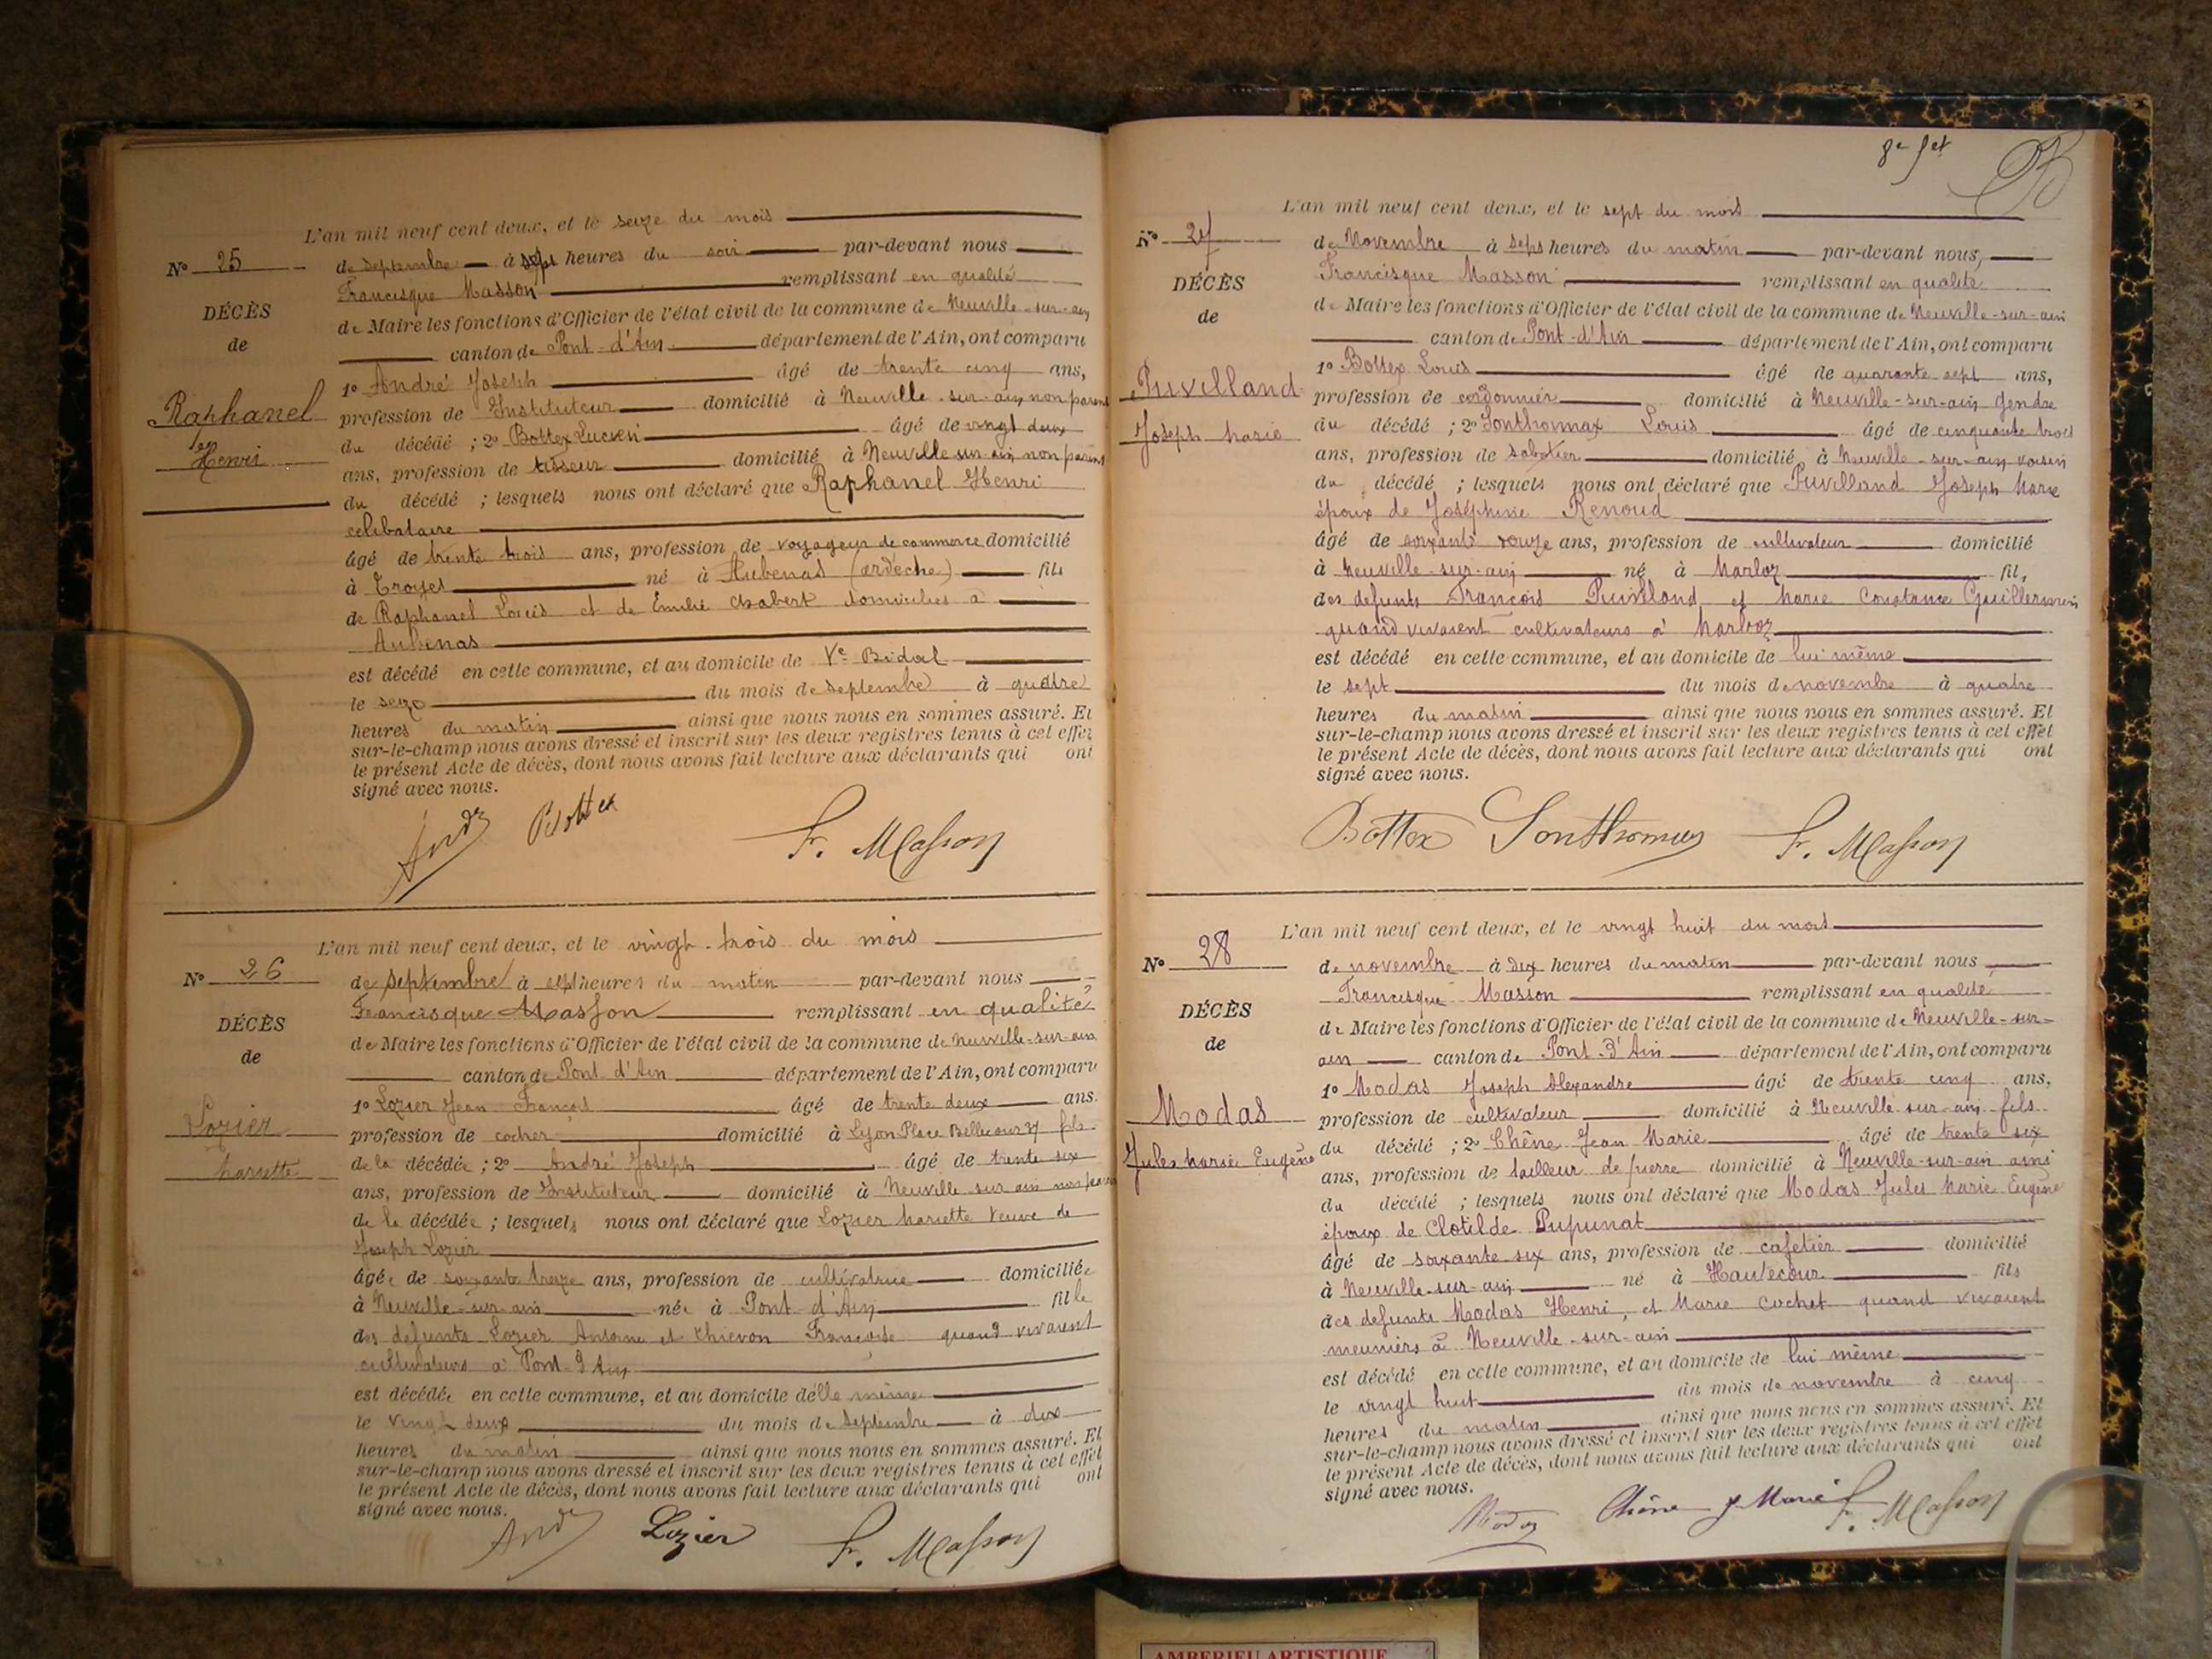 L'an mil neuf cent deux, et le seize du mois
N° 25
de septembre à sept heures du soir par-devant nous
Francisque Masson remplissant en qualité
DÉCÈS
de Maire les fonctions d'Officier de l'état civil de la commune de Neuville-sur-ain
de
canton de Pont-d'Ain département de l'Ain, ont comparu
1° André Joseph âgé de trente cinq ans,
Raphanel
profession de Instituteur domicilié à Neuville-sur-ain, non parent
du décédé ; 2° Bottex Lucien âgé de vingt deux
Henri
ans, profession de tisseur domicilié à Neuville sur ain, non parent
du décédé ; lesquels nous ont déclaré que Raphanel Henri
célibataire
âgé de trente trois ans, profession de voyageur de commerce domicilié
à Troyes né à Aubenas (ardèche) fils
de Raphanel Louis et de Émilie Chabert domiciliés à
Aubenas
est décédé en cette commune, et au domicile de Ve Bidal
le seize du mois de septembre à quatre
heures du matin ainsi que nous nous en sommes assuré. Et
sur-le-champ nous avons dressé et inscrit sur les deux registres tenus à cet effet
le présent Acte de décès, dont nous avons fait lecture aux déclarants qui ont
signé avec nous.
André Bottex F. Masson
L'an mil neuf cent deux, et le vingt-trois du mois
N° 26
de septembre à sept heures du matin par-devant nous
Francisque Masson remplissant en qualité
DÉCÈS
de Maire les fonctions d'Officier de l'état civil de la commune de Neuville-sur-ain
de
canton de Pont d'Ain département de l'Ain, ont comparu
1° Lozier Jean François âgé de trente deux ans.
Lozier
profession de cocher domicilié à Lyon Place Bellecour 37 fils
de la décédée ; 2° André Joseph âgé de trente six
Mariette
ans, profession de Instituteur domicilié à Neuville sur ain non parent
de la décédée ; lesquels nous ont déclaré que Lozier Mariette Veuve de
Joseph Lozier
âgée de soixante treize ans, profession de cultivatrice domiciliée
à Neuville-sur-ain née à Pont-d'Ain fille
des défunts Lozier Antoine et Thievon Françoise quand vivaient
cultivateurs à Pont-d'Ain
est décédée en cette commune, et au domicile d'elle même
le vingt deux du mois de Septembre à dix
heures du matin ainsi que nous nous en sommes assuré. Et
sur-le-champ nous avons dressé et inscrit sur les deux registres tenus à cet effet
le présent Acte de décès, dont nous avons fait lecture aux déclarants qui ont
signé avec nous.
André Lozier F. Masson
8e fet
L'an mil neuf cent deux, et le sept du mois
N° 27
de Novembre à sept heures du matin par-devant nous,
Francisque Masson remplissant en qualité
DÉCÈS
de Maire les fonctions d'Officier de l'état civil de la commune de Neuville-sur-ain
de
canton de Pont-d'Ain département de l'Ain, ont comparu
1° Bottex Louis âgé de quarante sept ans,
Puvilland
profession de cordonnier domicilié à Neuville-sur-ain gendre
du décédé ; 2° Sonthonnax Louis âgé de cinquante trois
Joseph Marie
ans, profession de sabotier domicilié à Neuville-sur-ain voisin
du décédé ; lesquels nous ont déclaré que Puvilland Joseph Marie
époux de Joséphine Renoud
âgé de soixante onze ans, profession de cultivateur domicilié
à Neuville-sur-ain né à Marboz fils
des défunts François Puvilland et Marie Constance Guillermin
quand vivaient cultivateurs à Marboz
est décédé en cette commune, et au domicile de lui même
le sept du mois de novembre à quatre
heures du matin ainsi que nous nous en sommes assuré. Et
sur-le-champ nous avons dressé et inscrit sur les deux registres tenus à cet effet
le présent Acte de décès, dont nous avons fait lecture aux déclarants qui ont
signé avec nous.
Bottex Sonthonnax F. Masson
L'an mil neuf cent deux, et le vingt huit du mois
N° 28
de novembre à dix heures du matin par-devant nous
Francisque Masson remplissant en qualité
DÉCÈS
de Maire les fonctions d'Officier de l'état civil de la commune de Neuville-sur-
de
ain canton de Pont-d'Ain département de l'Ain, ont comparu
1° Modas Joseph Alexandre âgé de trente cinq ans,
Modas
profession de cultivateur domicilié à Neuville-sur-ain fils
du décédé ; 2° Chêne Jean Marie âgé de trente six
Jules Marie Eugène
ans, profession de tailleur de pierre domicilié à Neuville-sur-ain ami
du décédé ; lesquels nous ont déclaré que Modas Jules Marie Eugène
époux de Clotilde Pupunat
âgé de soixante-six ans, profession de cafetier domicilié
à Neuville-sur-ain né à Hautecour fils
des défunts Modas Henri, et Marie Cochet quand vivaient
meuniers à Neuville-sur-ain
est décédé en cette commune, et au domicile de lui même
le vingt huit du mois de novembre à cinq
heures du matin ainsi que nous nous en sommes assuré. Et
sur-le-champ nous avons dressé et inscrit sur les deux registres tenus à cet effet
le présent Acte de décès, dont nous avons fait lecture aux déclarants qui ont
signé avec nous.
Modas Chêne J Marie F. Masson
AMBERIEU ARTISTIQUE